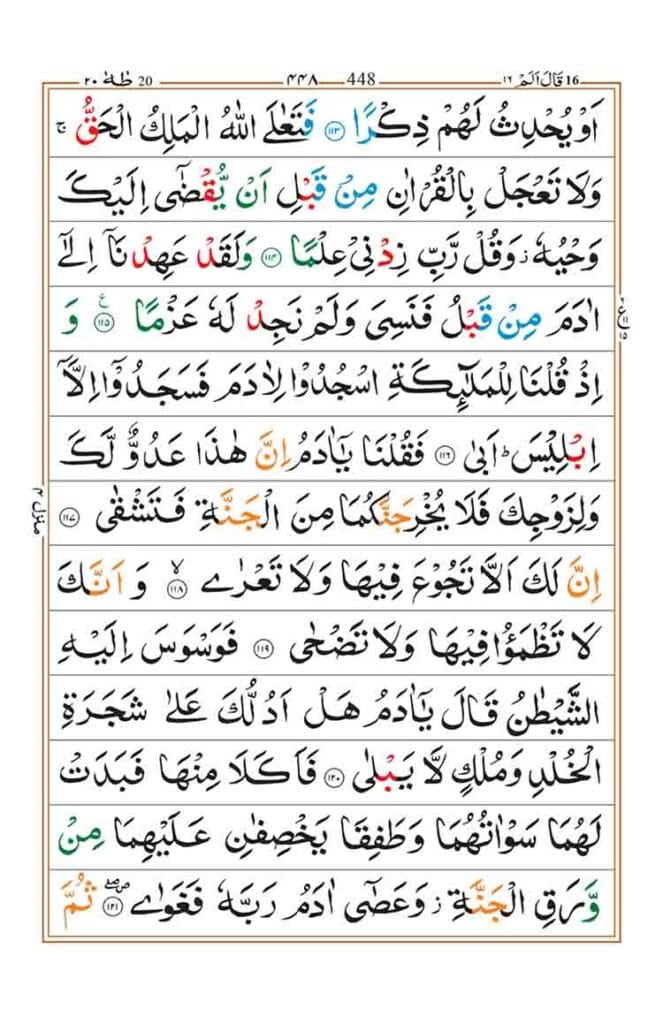 20 طٰهٰ ٢٠ 448 ٤٤٨ 16 قَالَ اَلَمْ ١٦
اَوْ يُحْدِثُ لَهُمْ ذِكْرًا ﴿١١٣﴾ فَتَعٰلَى اللّٰهُ الْمَلِكُ الْحَقُّ ۚ
وَلَا تَعْجَلْ بِالْقُرْاٰنِ مِنْ قَبْلِ اَنْ يُّقْضٰٓى اِلَيْكَ
وَحْيُهٗ ز وَقُلْ رَّبِّ زِدْنِيْ عِلْمًا ﴿١١٤﴾ وَلَقَدْ عَهِدْنَآ اِلٰٓى
اٰدَمَ مِنْ قَبْلُ فَنَسِيَ وَلَمْ نَجِدْ لَهٗ عَزْمًا ﴿١١٥﴾ ع وَ
اِذْ قُلْنَا لِلْمَلٰٓئِكَةِ اسْجُدُوْا لِاٰدَمَ فَسَجَدُوْٓا اِلَّآ
اِبْلِيْسَ ؕ اَبٰى ﴿١١٦﴾ فَقُلْنَا يٰٓاٰدَمُ اِنَّ هٰذَا عَدُوٌّ لَّكَ
وَلِزَوْجِكَ فَلَا يُخْرِجَنَّكُمَا مِنَ الْجَنَّةِ فَتَشْقٰى ﴿١١٧﴾
اِنَّ لَكَ اَلَّا تَجُوْعَ فِيْهَا وَلَا تَعْرٰى ﴿١١٨﴾ لا وَ اَنَّكَ
لَا تَظْمَؤُا فِيْهَا وَلَا تَضْحٰى ﴿١١٩﴾ فَوَسْوَسَ اِلَيْهِ
الشَّيْطٰنُ قَالَ يٰٓاٰدَمُ هَلْ اَدُلُّكَ عَلٰى شَجَرَةِ
الْخُلْدِ وَمُلْكٍ لَّا يَبْلٰى ﴿١٢٠﴾ فَاَكَلَا مِنْهَا فَبَدَتْ
لَهُمَا سَوْاٰتُهُمَا وَطَفِقَا يَخْصِفٰنِ عَلَيْهِمَا مِنْ
وَّرَقِ الْجَنَّةِ ز وَعَصٰٓى اٰدَمُ رَبَّهٗ فَغَوٰى ﴿١٢١﴾ ثُمَّ
منزل ٤